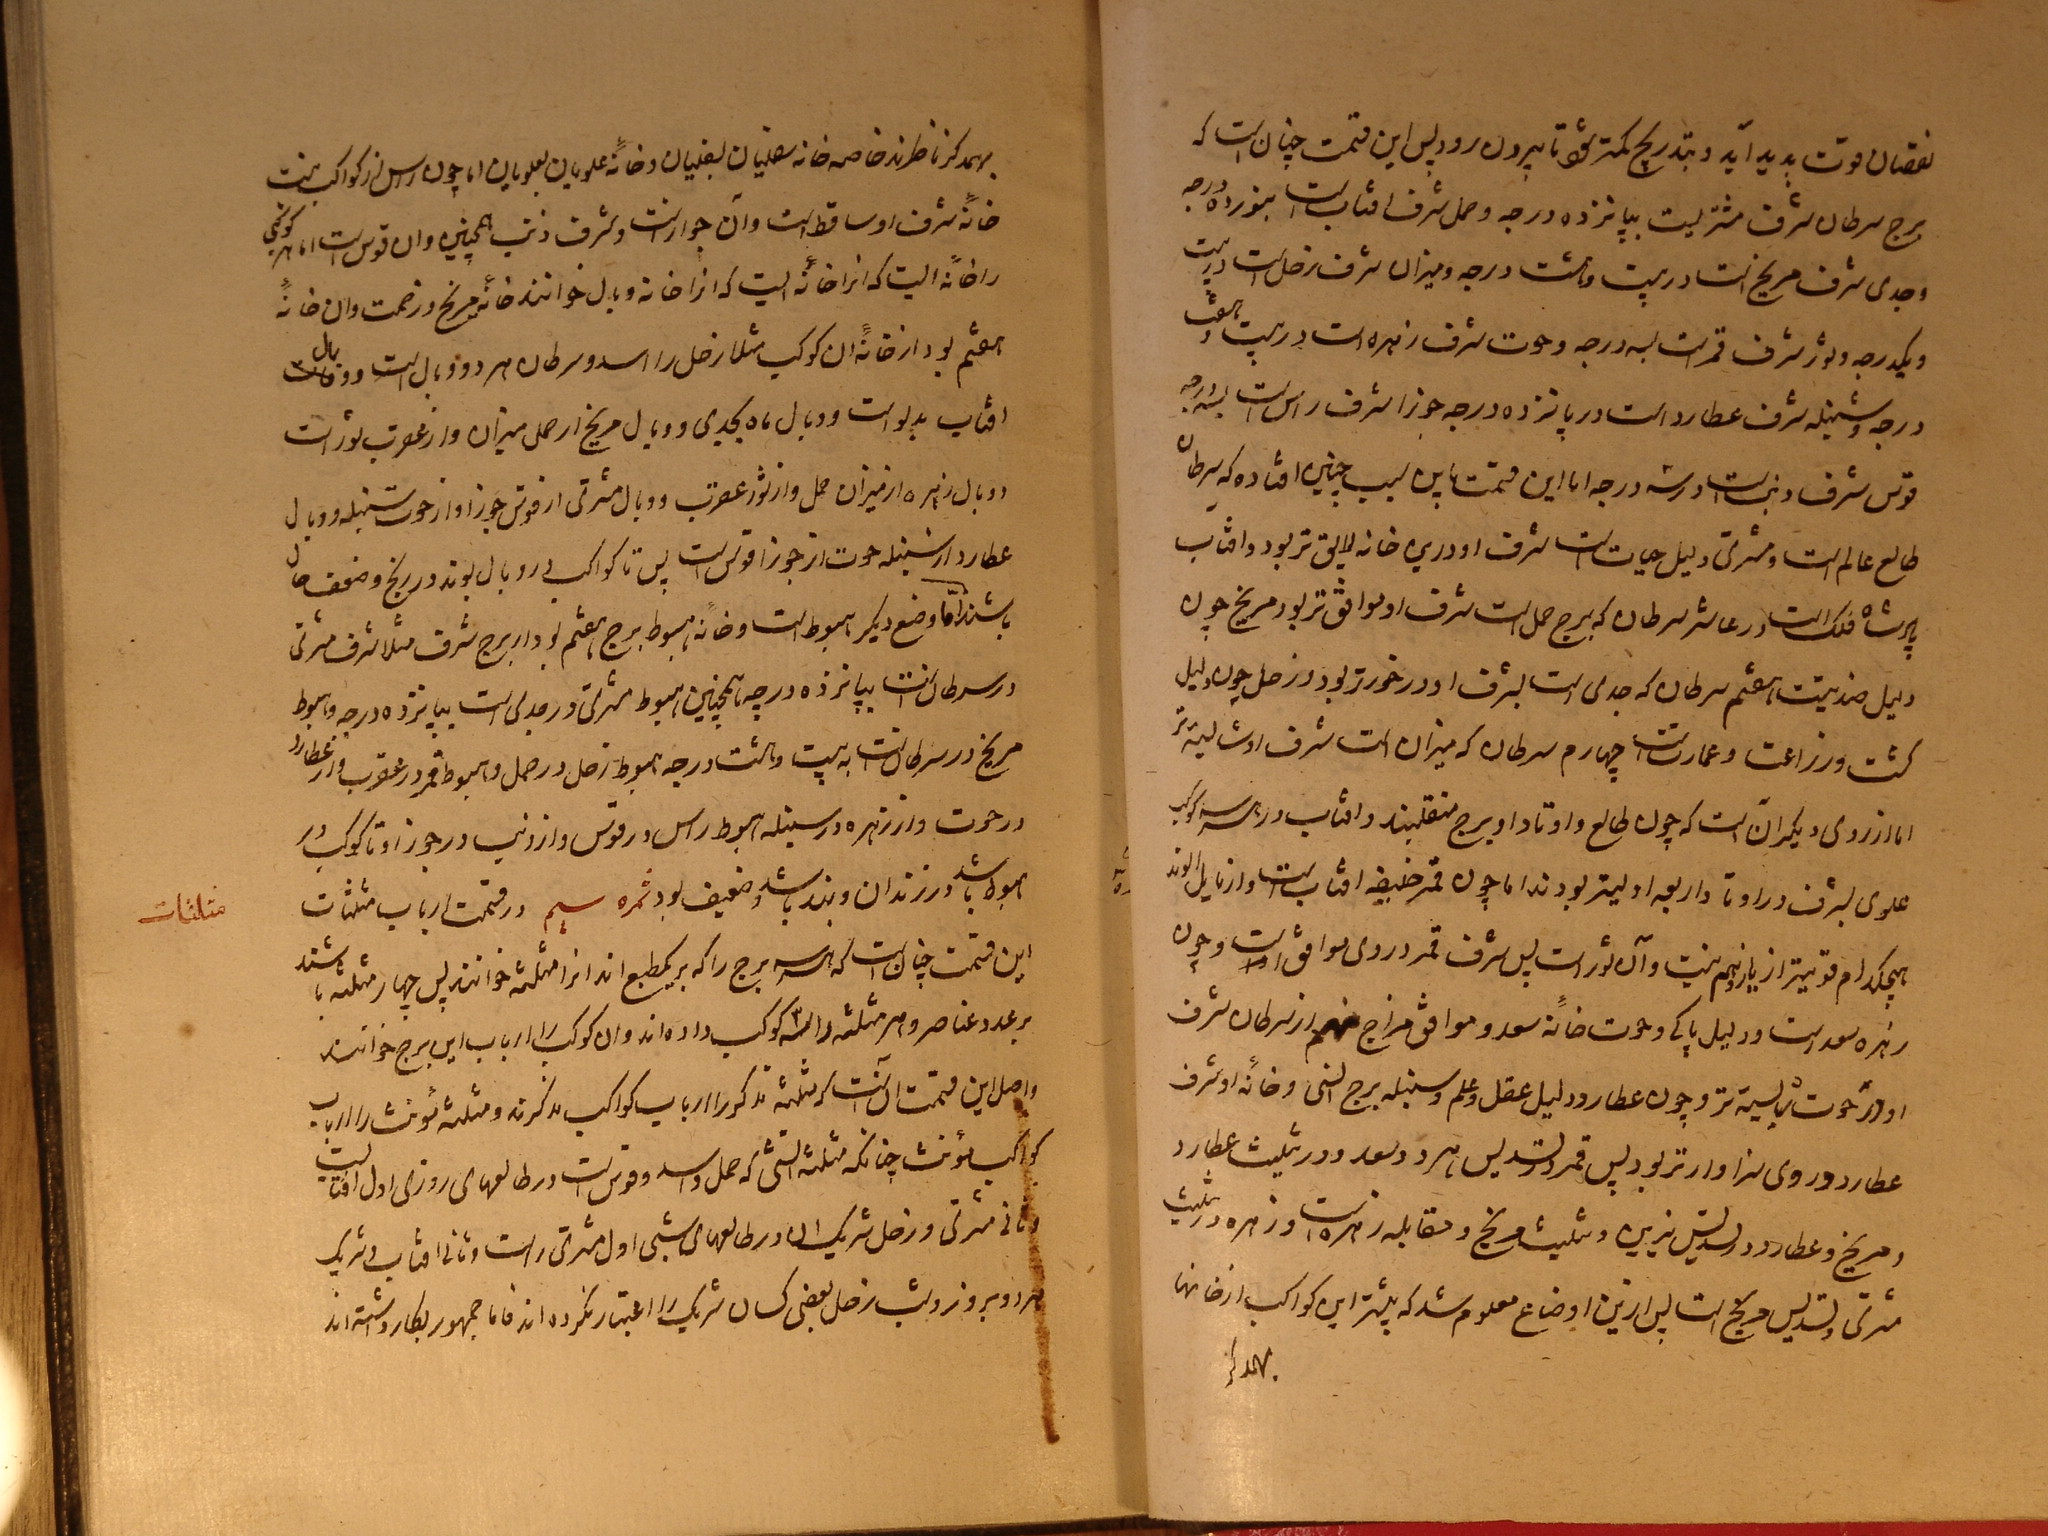 نقصان قوت پدید آید و بتدریج کمتر تا بیرون رود پس این قسمت چنان است که
برج سرطان شرف مشتریست بپانزده درجه و حمل شرف افتاب است بنوزده درجه
وجدی شرف مریخ است در بیست وهشت درجه ومیزان شرف زحل است در بیست
ویکدرجه وثور شرف قمر است بسه درجه وحوت شرف زهره است در بیست وهفت
درجه وسنبله شرف عطارد است در پانزده درجه جوزا شرف راس است بسه درجه
قوس شرف ذنب است در سه درجه اما این قسمت باین سبب چنین افتاده که سرطان
طالع عالم است ومشتری دلیل حیات است شرف او درین خانه لایق تر بود وافتاب
پادشاه فلک است در عاشر سرطان که برج حمل است شرف او موافق تر بود مریخ چون
دلیل ضدیت هفتم سرطان که جدی است بشرف او در خورتر بود وزحل چون دلیل
کشت وزراعت وعمارت است چهارم سرطان که میزان است شرف او شایسته تر
اما از روی دیگر آن است که چون طالع واوتاد او برج منقلبند وافتاب در هر سه کوکب
علوی بشرف در اوتاد اربعه اولیتر بودند اما چون قمر خلیفه افتاب است واز مایل الوتد
هیچکدام قویتر از یازدهم نیست وآن ثور است پس شرف قمر در وی موافق است وچون
زهره سعد است ودلیل پاکی وحوت خانهٔ سعد وموافق مزاج نهم از سرطان شرف
او در حوت بایسته تر وچون عطارد دلیل عقل وعلم وسنبله برج انسی وخانهٔ او شرف
عطارد در وی سزاوارتر بود پس قمر در تسدیس هر دو سعد ودر تثلیث عطارد
ومریخ وعطارد در تسدیس نیرین وتثلیث مریخ ومقابله زهره است وزهره در تثلیث
مشتری وتسدیس مریخ است پس ازین اوضاع معلوم شد که بیشتر این کواکب از خانها
بهمدگر
بهمدگر ناظرند خاصه خانه سفلیان بسفلیان وخانهٔ علویان بعلویان اما چون راس از کواکب نیست
خانهٔ شرف او ساقط است وآن جوزاست وشرف ذنب همچنین وان قوس است اما هر کوکبی
را خانهٔ الیت که انرا خانه وبال خوانند خانهٔ مریخ وزحمت وان خانهٔ
هفتم بود از خانهٔ ان کوکب مثلا زحل را اسد وسرطان هر دو وبال است ووبال
افتاب بدلو است ووبال ماه بجدی ووبال مریخ از حمل میزان واز عقرب ثور است
ووبال زهره از میزان حمل واز ثور عقرب ووبال مشتری از قوس جوزا واز حوت سنبله ووبال
عطارد از سنبله حوت از جوزا قوس است پس تا کواکب در وبال بوند در رنج وضعف حال
باشند اما وضع دیگر هبوط است وخانهٔ هبوط برج هفتم بود از برج شرف مثلا شرف مشتری
در سرطان است بپانزده درجه همچنین هبوط مشتری در جدی است بپانزده درجه وهبوط
مریخ در سرطانست به بیست وهشت درجه هبوط زحل در حمل وهبوط قمر در عقرب واز عطارد
در حوت واز زهره در سنبله هبوط راس در قوس واز ذنب در جوزا وتا کوکب در
هبوط باشد در زندان وبند باشد وضعیف بود ثمره سیم در قسمت ارباب مثلثات
مثلثات
این قسمت چنان است که هر سه برج را که بر یک طبع اند انرا مثلثه خوانند پس چهار مثلثه باشند
بر عدد عناصر وهر مثلثه را سه کوکب داده اند وان کوکب را ارباب این برج خوانند
واصل این قسمت آنست که مثلثه مذکر را ارباب کواکب مذکرند ومثلثه مؤنث را ارباب
کواکب مؤنث چنانکه مثلثه آتشی که حمل واسد وقوس است در طالعهای روزی اول افتابست
وثانی مشتری وزحل شریک ان ودر طالعهای شبی اول مشتری است وثانی افتاب وشریک
هر دو بروز وشب زحل بعضی کسان شریک را اعتبار نکرده اند فاما جمهور بکار داشته اند